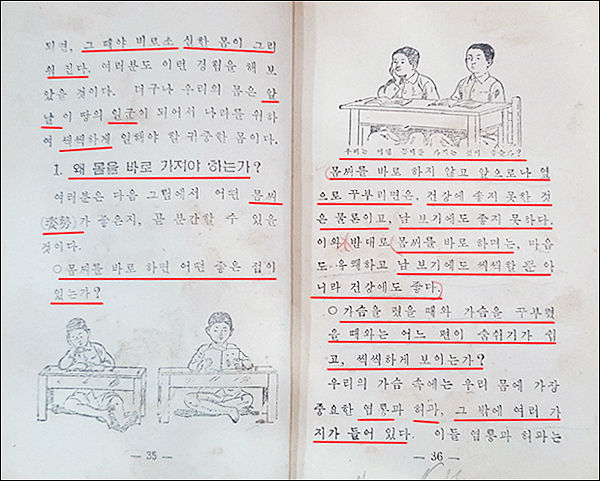 되면, 그 때야 비로소 성한 몸이 그리
워 진다. 여러분도 이런 경험을 해 보
았을 것이다. 더구나 우리의 몸은 앞
날 이 땅의 일군이 되어서 나라를 위하
여 씩씩하게 일해야 할 귀중한 몸이다.
1. 왜 몸을 바로 가져야 하는가?
여러분은 다음 그림에서 어떤 몸써
(姿勢)가 좋은지, 곧 분간할 수 있을
것이다.
○몸써를 바로 하면 어떤 좋은 점이
있는가?
— 35 —
우리는 어떤 몸써를 가지는 것이 좋을까?
몸써를 바로 하지 않고 앞으로나 옆
으로 꾸부리면은, 건강에 좋지 못한 것
은 물론이고, 남 보기에도 좋지 못하다.
이와 반대로 몸써를 바로 하며는, 마음
도 유쾌하고 남 보기에도 씩씩할 뿐 아
니라 건강에도 좋다.
○가슴을 폈을 때와 가슴을 꾸부렸
을 때와는 어느 편이 숨쉬기가 쉽
고, 씩씩하게 보이는가?
우리의 가슴 속에는 우리 몸에 가장
중요한 염통과 허파, 그 밖에 여러 가
지가 들어 있다. 이들 염통과 허파는
— 36 —